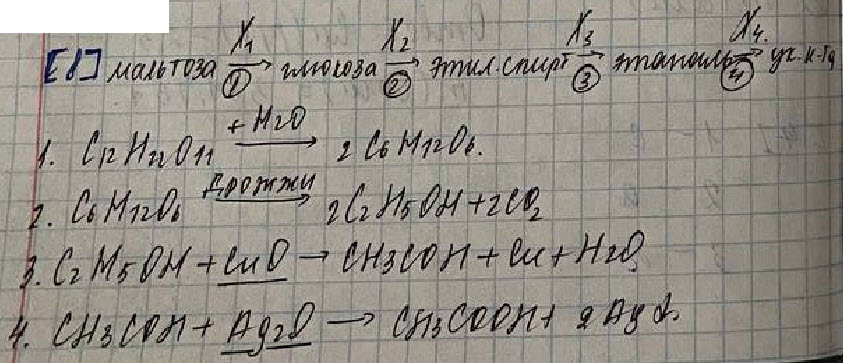 X1 X2 X3 X4.
[8] мальтоза → глюкоза → этил.спирт → этаналь → ук. к-та
① ② ③ ④
1. C12H22O11 + H2O → 2 C6H12O6.
2. C6H12O6 Дрожжи → 2C2H5OH + 2CO2
3. C2H5OH + CuO → CH3COH + Cu + H2O
4. CH3COH + Ag2O → CH3COOH + 2Ag↓.